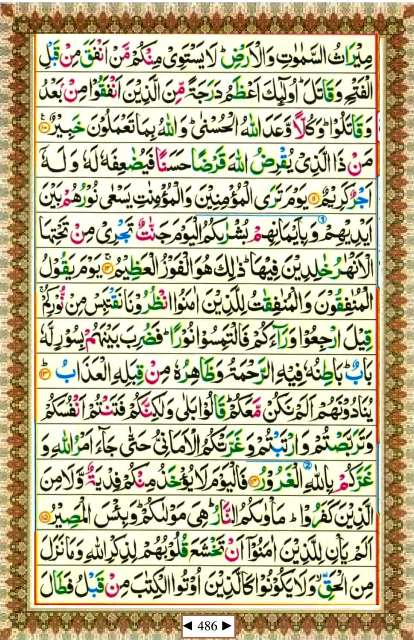 مِيْرَاثُ السَّمٰوٰتِ وَالْاَرْضِ ؕ لَا يَسْتَوِىْ مِنْكُمْ مَّنْ اَنْفَقَ مِنْ قَبْلِ
الْفَتْحِ وَقَاتَلَ ؕ اُولٰٓئِكَ اَعْظَمُ دَرَجَةً مِّنَ الَّذِيْنَ اَنْفَقُوْا مِنْۢ بَعْدُ
وَقَاتَلُوْا ؕ وَكُلًّا وَّعَدَ اللّٰهُ الْحُسْنٰى ؕ وَاللّٰهُ بِمَا تَعْمَلُوْنَ خَبِيْرٌ ﴿۱۰﴾
مَنْ ذَا الَّذِىْ يُقْرِضُ اللّٰهَ قَرْضًا حَسَنًا فَيُضٰعِفَهٗ لَهٗ وَلَهٗۤ
اَجْرٌ كَرِيْمٌ ﴿۱۱﴾ يَوْمَ تَرَى الْمُؤْمِنِيْنَ وَالْمُؤْمِنٰتِ يَسْعٰى نُوْرُهُمْ بَيْنَ
اَيْدِيْهِمْ وَبِاَيْمَانِهِمْ بُشْرٰٮكُمُ الْيَوْمَ جَنّٰتٌ تَجْرِىْ مِنْ تَحْتِهَا
الْاَنْهٰرُ خٰلِدِيْنَ فِيْهَا ؕ ذٰلِكَ هُوَ الْفَوْزُ الْعَظِيْمُ ﴿۱۲﴾ يَوْمَ يَقُوْلُ
الْمُنٰفِقُوْنَ وَالْمُنٰفِقٰتُ لِلَّذِيْنَ اٰمَنُوا انْظُرُوْنَا نَقْتَبِسْ مِنْ نُّوْرِكُمْ ۚ
قِيْلَ ارْجِعُوْا وَرَآءَكُمْ فَالْتَمِسُوْا نُوْرًا ؕ فَضُرِبَ بَيْنَهُمْ بِسُوْرٍ لَّهٗ
بَابٌ ؕ بَاطِنُهٗ فِيْهِ الرَّحْمَةُ وَظَاهِرُهٗ مِنْ قِبَلِهِ الْعَذَابُ ؕ ﴿۱۳﴾
يُنَادُوْنَهُمْ اَلَمْ نَكُنْ مَّعَكُمْ ؕ قَالُوْا بَلٰى وَلٰكِنَّكُمْ فَتَنْتُمْ اَنْفُسَكُمْ
وَتَرَبَّصْتُمْ وَارْتَبْتُمْ وَغَرَّتْكُمُ الْاَمَانِىُّ حَتّٰى جَآءَ اَمْرُ اللّٰهِ وَ
غَرَّكُمْ بِاللّٰهِ الْغَرُوْرُ ﴿۱۴﴾ فَالْيَوْمَ لَا يُؤْخَذُ مِنْكُمْ فِدْيَةٌ وَّلَا مِنَ
الَّذِيْنَ كَفَرُوْا ؕ مَاْوٰٮكُمُ النَّارُ ؕ هِىَ مَوْلٰٮكُمْ ؕ وَبِئْسَ الْمَصِيْرُ ﴿۱۵﴾
اَلَمْ يَاْنِ لِلَّذِيْنَ اٰمَنُوْۤا اَنْ تَخْشَعَ قُلُوْبُهُمْ لِذِكْرِ اللّٰهِ وَمَا نَزَلَ
مِنَ الْحَقِّ ۙ وَلَا يَكُوْنُوْا كَالَّذِيْنَ اُوْتُوا الْكِتٰبَ مِنْ قَبْلُ فَطَالَ
◄ 486 ►